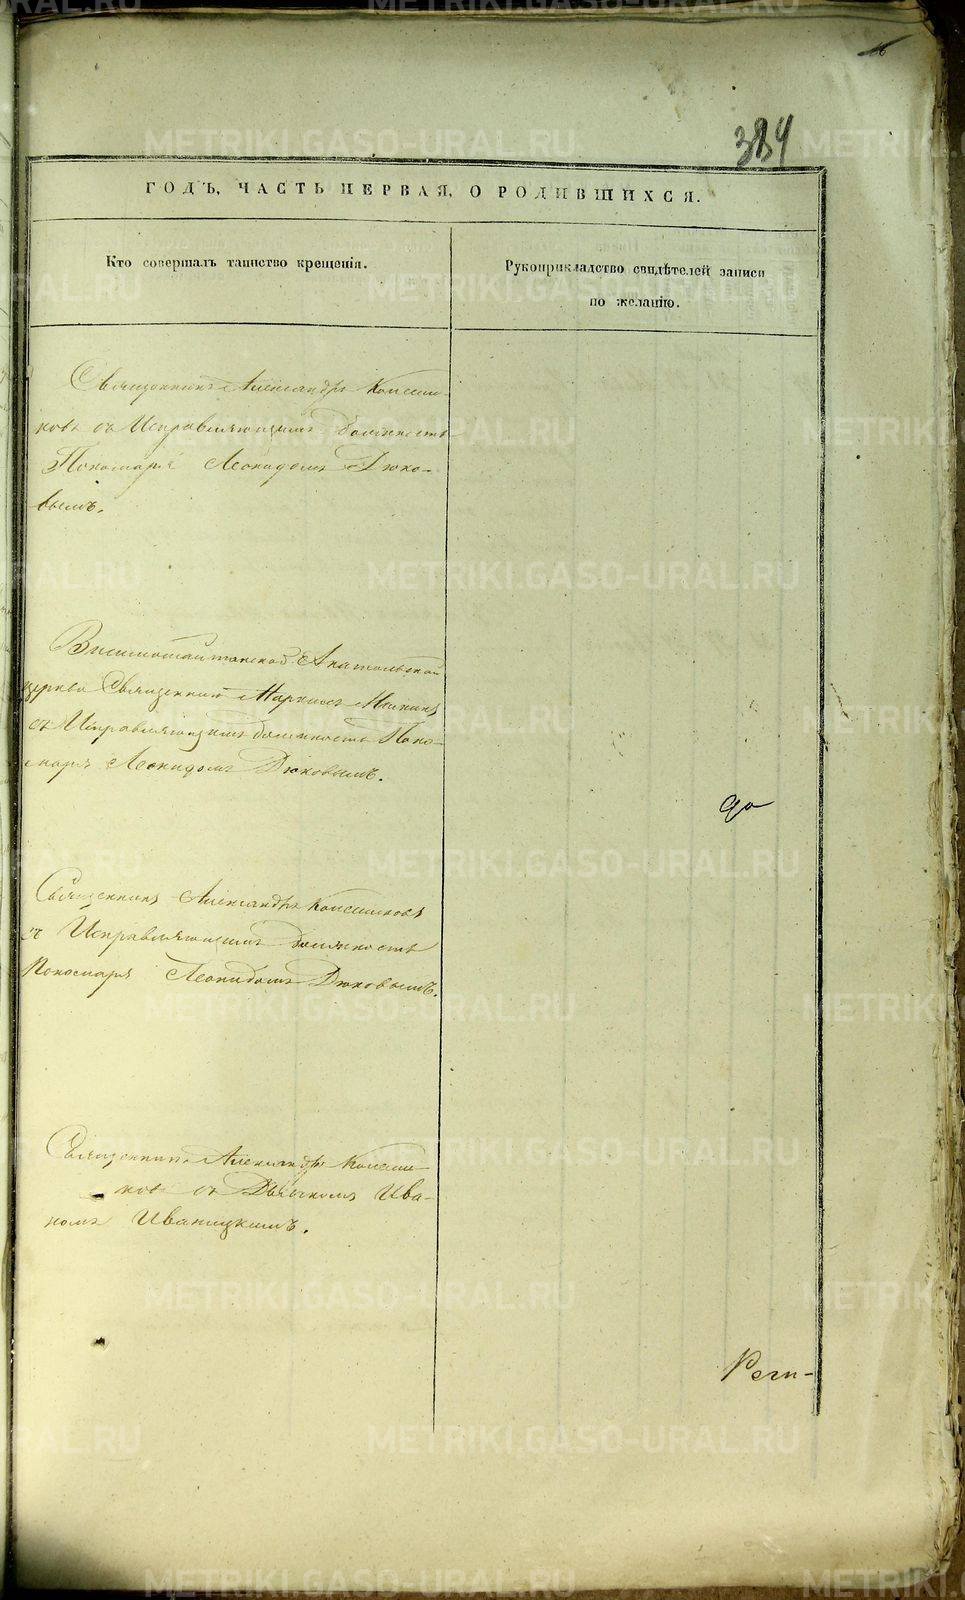 384
ГОДЪ, ЧАСТЬ ПЕРВАЯ, О РОДИВШИХСЯ.
Кто совершалъ таинство крещенія.
Рукоприкладство свидѣтелей записи
по желанію.
Священникъ Александръ Колесни-
ковъ съ Исправляющимъ должность
Пономаря Леонидомъ Дюко-
вымъ.
Анатольской
церкви Священникъ Маркелъ
съ Исправляющимъ должность Поно-
маря Леонидомъ Дюковымъ.
Священникъ Александръ Колесниковъ
съ Исправляющимъ должность
Пономаря Леонидомъ Дюковымъ.
Священникъ Александръ Колесни-
ковъ съ Дьячкомъ Ива-
номъ Иваницкимъ.
METRIKI.GASO-URAL.RU